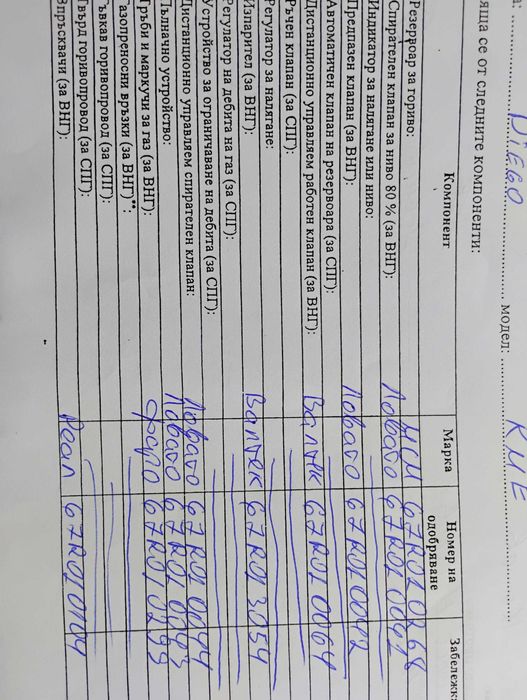 а: DiEGO модел: KME
яща се от следните компоненти:
Компонент Марка Номер на одобряване Забележк
Резервоар за гориво: МСМ 67R010268
Спирателен клапан за ниво 80 % (за ВНГ): Ловато 67R010092
Индикатор за налягане или ниво:
Предпазен клапан (за ВНГ): Ловато 67R010002
Автоматичен клапан на резервоара (за СПГ):
Дистанционно управляем работен клапан (за ВНГ): Валтек 67R010064
Ръчен клапан (за СПГ):
Регулатор за налягане:
Изпарител (за ВНГ): Валтек 67R013054
Регулатор на дебита на газ (за СПГ):
Устройство за ограничаване на дебита (за СПГ):
Дистанционно управляем спирателен клапан: Ловато 67R010044
Пълначно устройство: Ловато 67R010093
Тръби и маркучи за газ (за ВНГ): Фаро 67R010299
Газопреносни връзки (за ВНГ)**:
Гъвкав горивопровод (за СПГ):
Твърд горивопровод (за СПГ):
Впръсквачи (за ВНГ): Реал 67R010104